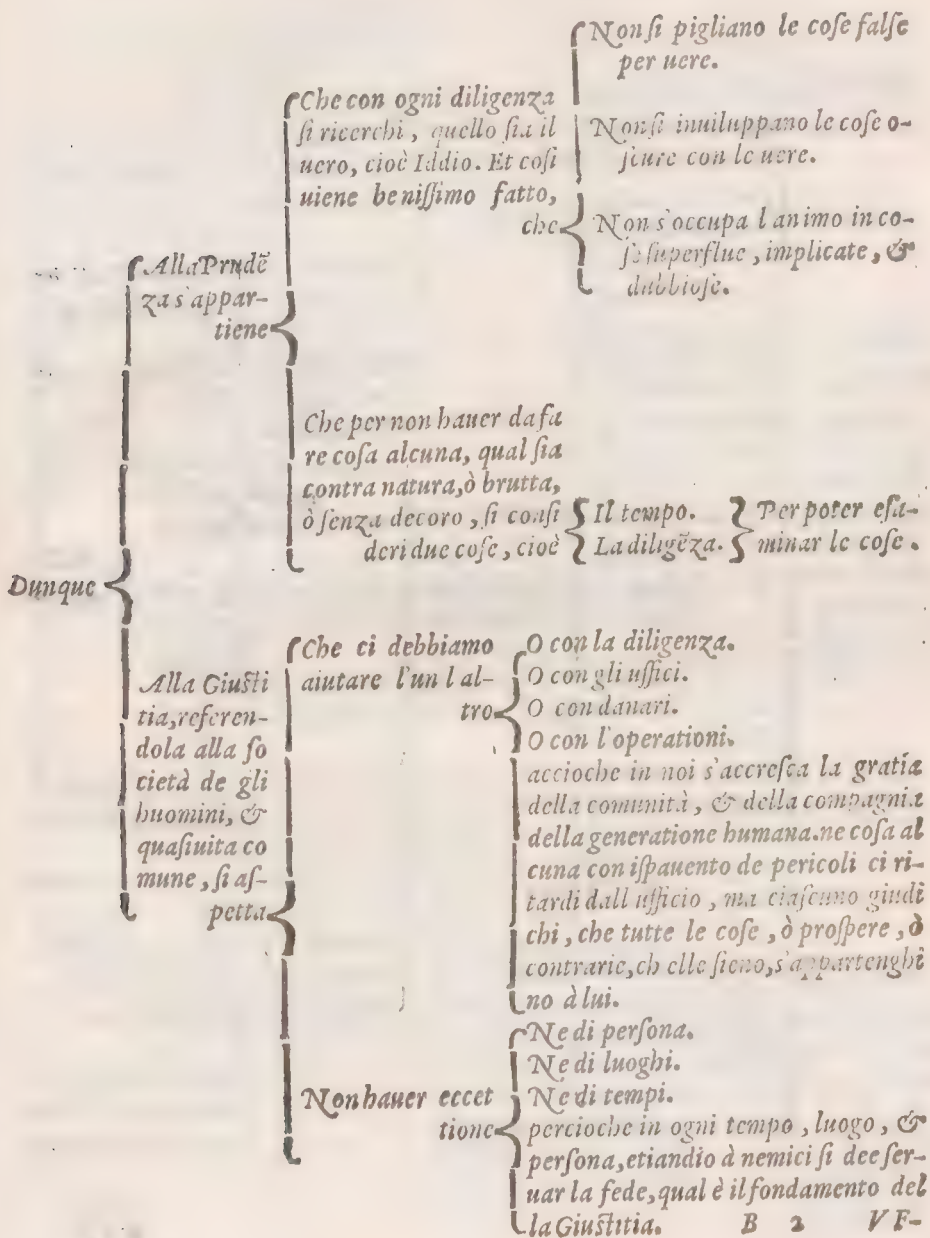 Dunque
Alla Prudē
za s'appar-
tiene
Che con ogni diligenza
ſi ricerchi, quello ſia il
uero, cioè Iddio. Et coſi
uiene beniſſimo fatto,
che
Non ſi pigliano le coſe falſe
per uere.
Non ſi inuiluppano le coſe o-
ſcure con le uere.
Non s'occupa l animo in co-
ſe ſuperflue, implicate, &
dubbioſe.
Che per non hauer da fa
re coſa alcuna, qual ſia
contra natura, ò brutta,
ò ſenza decoro, ſi conſi
deri due coſe, cioè
Il tempo.
La diligēza.
Per poter eſa-
minar le coſe.
Alla Giuſti
tia, referen-
dola alla ſo
cietà de gli
huomini, &
quaſi uita co
mune, ſi aſ-
petta
Che ci debbiamo
aiutare l'un l al-
tro
O con la diligenza.
O con gli uffici.
O con danari.
O con l'operationi.
accioche in noi s'accreſca la gratia
della comunità, & della compagnia
della generatione humana. ne coſa al
cuna con iſpauento de pericoli ci ri-
tardi dall ufficio, ma ciaſcuno giudi
chi, che tutte le coſe, ò proſpere, ò
contrarie, ch elle ſieno, s'appartenghi
no à lui.
Non hauer eccet
tione
Ne di perſona.
Ne di luoghi.
Ne di tempi.
percioche in ogni tempo, luogo, &
perſona, etiandio à nemici ſi dee ſer-
uar la fede, qual è il fondamento del
la Giuſtitia. B 2 VF-